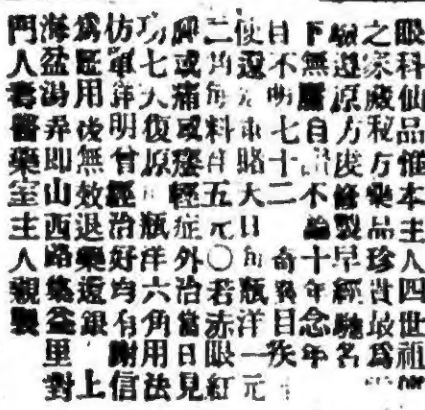 眼科仙品惟本主人四世祖
之家藏秘方藥品珍貴最爲
遵原方虔修製早經馳名
下無自不論十年念年
目不明七十二奇異目疾
使還元東賂大日瓶洋一元
二角每料五元〇若赤眼紅
脾或痛或癢輕症外治當日見
功七大復原瓶洋六角用法
仿單詳明曾經治好均有謝信
爲監用後無效退藥還銀上
海盆湯弄即山西路集益里對
門人壽醫藥室主人親製